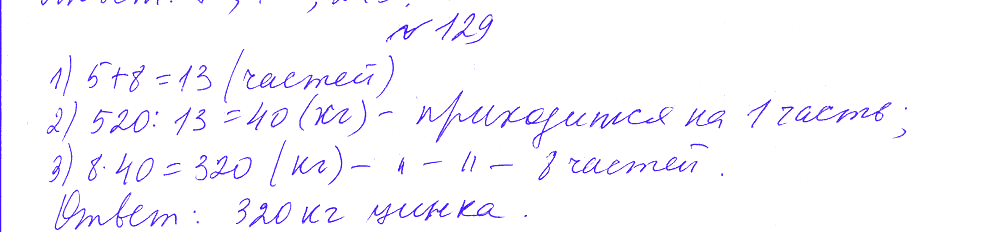 № 129
1) 5+8=13 (частей)
2) 520:13=40 (кг) - приходится на 1 часть;
3) 8·40=320 (кг) - " - " - 8 частей.
Ответ: 320 кг цинка.